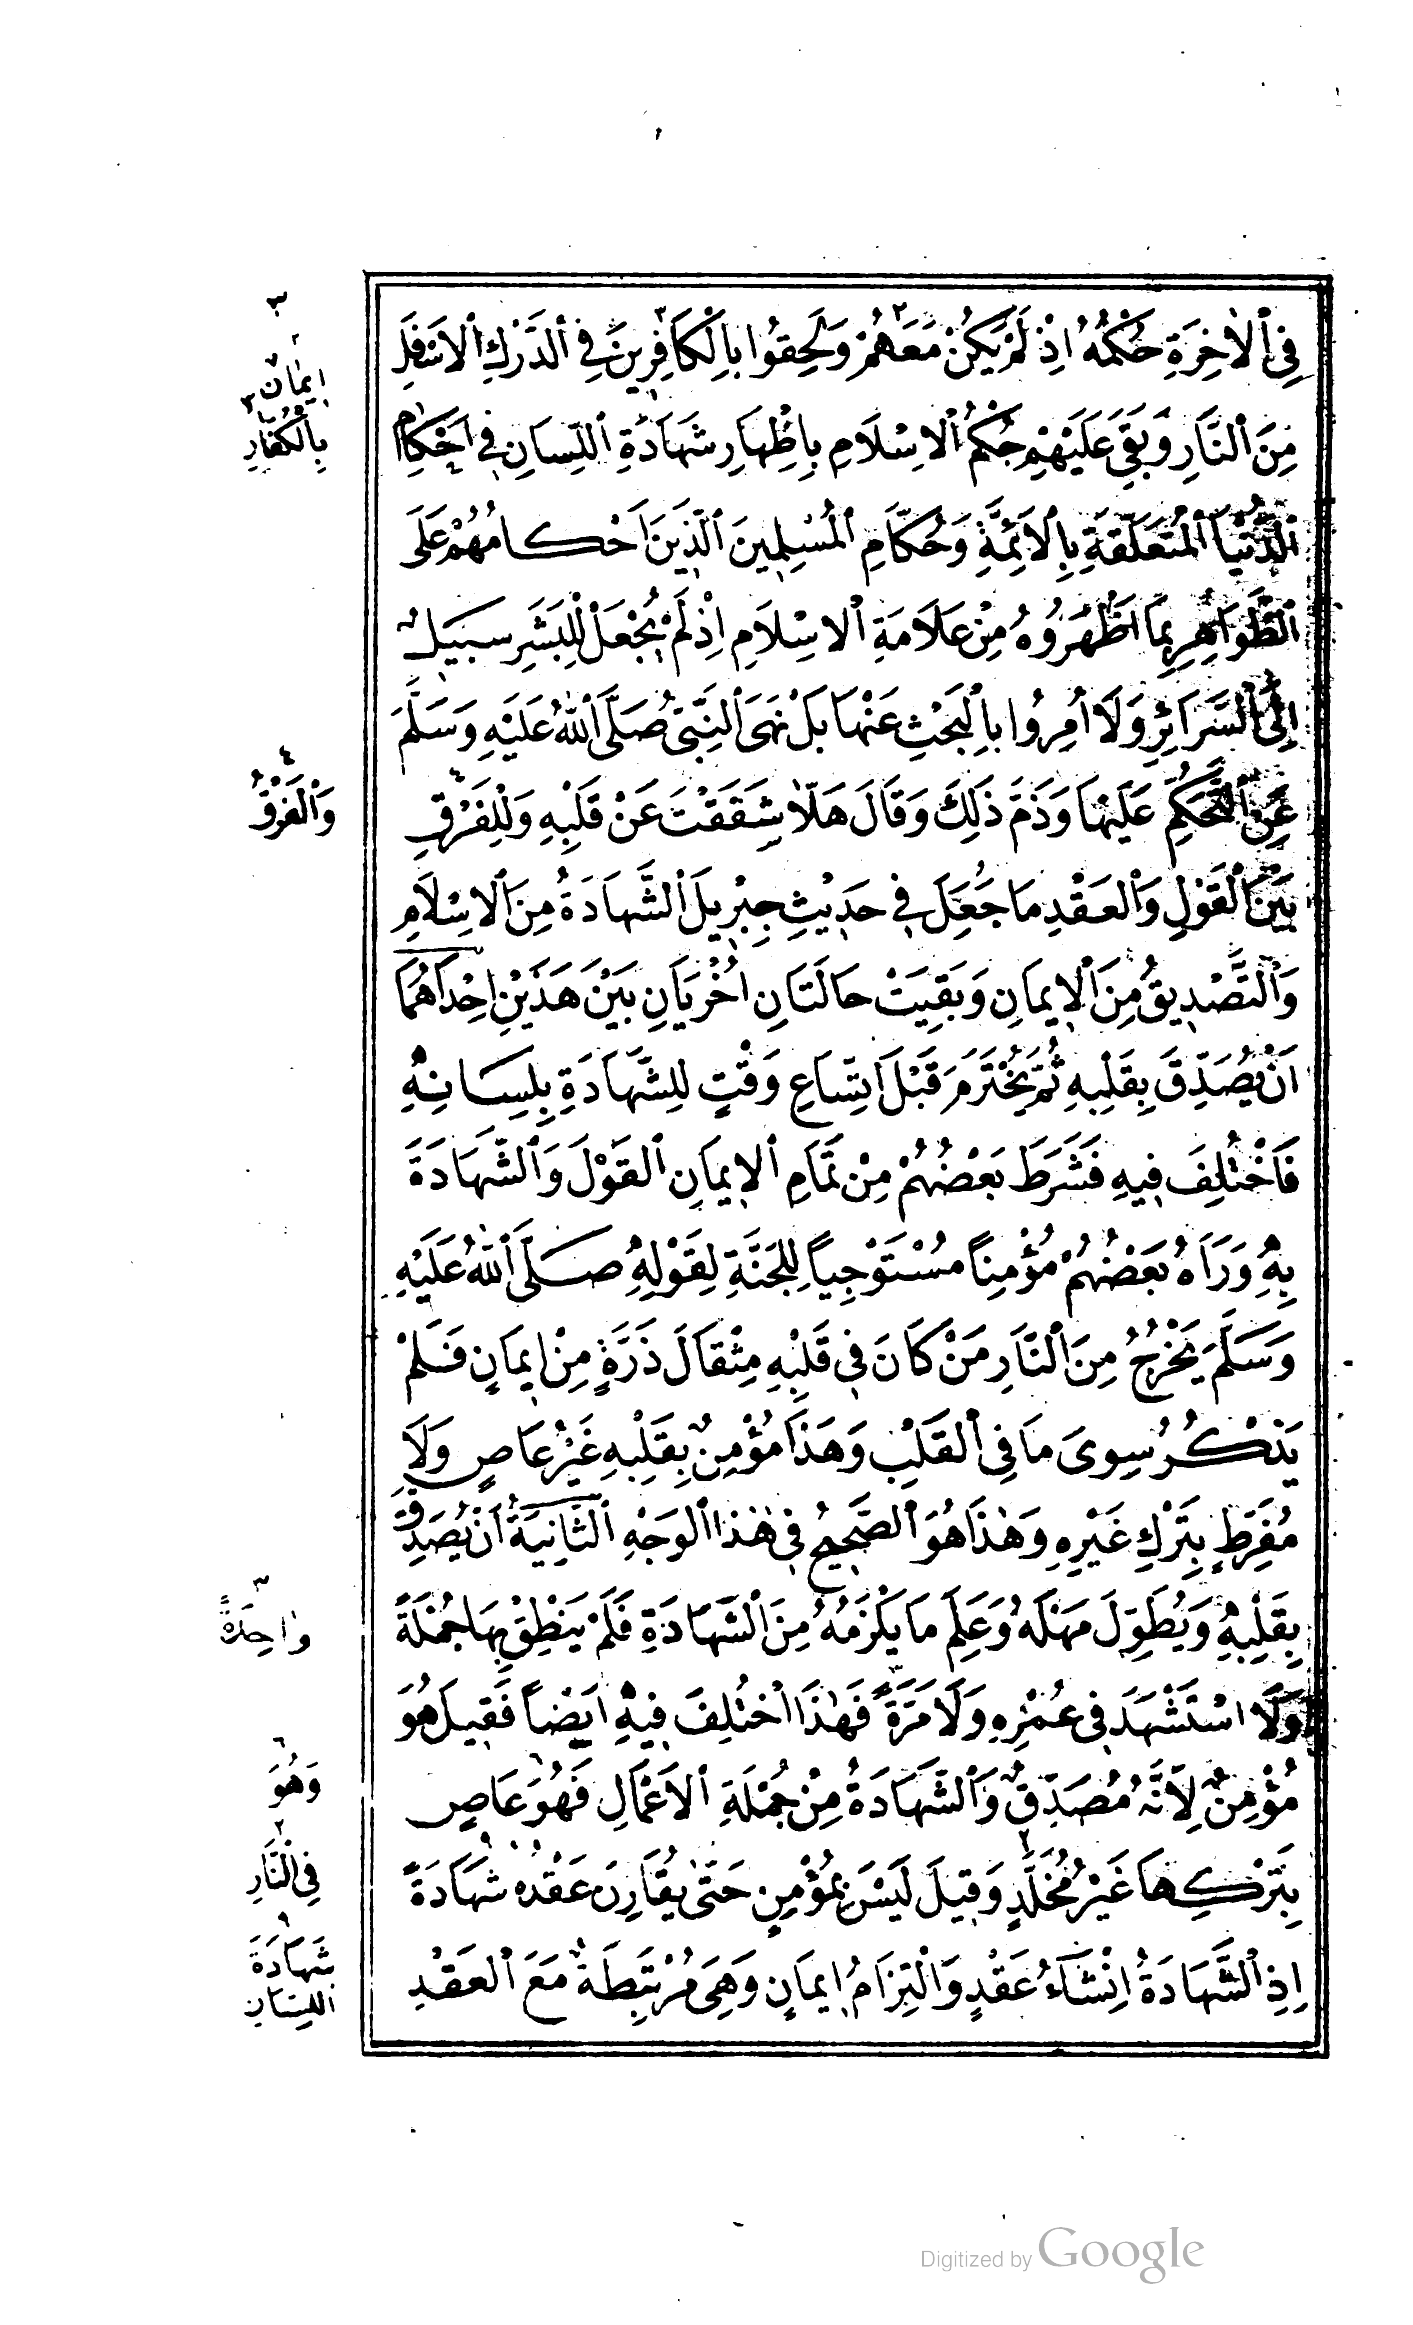 فِي ٱلْاٰخِرَةِ حُكْمُهُ اِذْ لَمْ يَكُنْ مَعَهُمْ وَلَحِقُوا بِالْكَافِرِينَ فِي ٱلدَّرْكِ ٱلْاَسْفَلِ
مِنَ ٱلنَّارِ وَبَقِيَ عَلَيْهِمْ حُكْمُ ٱلْاِسْلَامِ بِاِظْهَارِ شَهَادَةِ ٱللِّسَانِ فِي اَحْكَامِ
ٱلدُّنْيَا ٱلْمُتَعَلِّقَةِ بِالْاَئِمَّةِ وَحُكَّامِ ٱلْمُسْلِمِينَ ٱلَّذِينَ اَحْكَامُهُمْ عَلَى
ٱلظَّوَاهِرِ بِمَا اَظْهَرُوهُ مِنْ عَلَامَةِ ٱلْاِسْلَامِ اِذْ لَمْ يُجْعَلْ لِلْبَشَرِ سَبِيلٌ
اِلَى ٱلسَّرَائِرِ وَلَا اُمِرُوا بِالْبَحْثِ عَنْهَا بَلْ نَهَى ٱلنَّبِيُّ صَلَّى ٱللّٰهُ عَلَيْهِ وَسَلَّمَ
عَنِ ٱلتَّحَكُّمِ عَلَيْهَا وَذَمَّ ذَلِكَ وَقَالَ هَلَّا شَقَقْتَ عَنْ قَلْبِهِ وَلِلْفَرْقِ
بَيْنَ ٱلْقَوْلِ وَٱلْعَقْدِ مَا جُعِلَ فِي حَدِيثِ جِبْرِيلَ ٱلشَّهَادَةُ مِنَ ٱلْاِسْلَامِ
وَٱلتَّصْدِيقُ مِنَ ٱلْاِيمَانِ وَبَقِيَتْ حَالَتَانِ اُخْرَيَانِ بَيْنَ هَذَيْنِ اِحْدَاهُمَا
اَنْ يُصَدِّقَ بِقَلْبِهِ ثُمَّ يُخْتَرَمَ قَبْلَ اتِّسَاعِ وَقْتٍ لِلشَّهَادَةِ بِلِسَانِهِ
فَاخْتُلِفَ فِيهِ فَشَرَطَ بَعْضُهُمْ مِنْ تَمَامِ ٱلْاِيمَانِ ٱلْقَوْلَ وَٱلشَّهَادَةَ
بِهِ وَرَاَهُ بَعْضُهُمْ مُؤْمِنًا مُسْتَوْجِبًا لِلْجَنَّةِ لِقَوْلِهِ صَلَّى ٱللّٰهُ عَلَيْهِ
وَسَلَّمَ يَخْرُجُ مِنَ ٱلنَّارِ مَنْ كَانَ فِي قَلْبِهِ مِثْقَالَ ذَرَّةٍ مِنْ اِيمَانٍ فَلَمْ
يَذْكُرْ سِوَى مَا فِي ٱلْقَلْبِ وَهَذَا مُؤْمِنٌ بِقَلْبِهِ غَيْرُ عَاصٍ وَلَا
مُفَرِّطٍ بِتَرْكِ غَيْرِهِ وَهٰذَا هُوَ ٱلصَّحِيحُ فِي هٰذَا ٱلْوَجْهِ ٱلثَّانِيَةُ اَنْ يُصَدِّقَ
بِقَلْبِهِ وَيُطَوِّلَ مَهَلَهُ وَعَلِمَ مَا يَلْزَمُهُ مِنَ ٱلشَّهَادَةِ فَلَمْ يَنْطِقْ بِهَا جُمْلَةً
وَلَا اسْتَشْهَدَ فِي عُمْرِهِ وَلَا مَرَّةً فَهٰذَا اخْتُلِفَ فِيهِ اَيْضًا فَقِيلَ هُوَ
مُؤْمِنٌ لِاَنَّهُ مُصَدِّقٌ وَٱلشَّهَادَةُ مِنْ جُمْلَةِ ٱلْاَعْمَالِ فَهُوَ عَاصٍ
بِتَرْكِهَا غَيْرُ مُخَلَّدٍ وَقِيلَ لَيْسَ بِمُؤْمِنٍ حَتّٰى يُقَارِنَ عَقْدُهُ شَهَادَةً
اِذِ ٱلشَّهَادَةُ اِنْشَاءُ عَقْدٍ وَالْتِزَامُ اِيمَانٍ وَهِيَ مُرْتَبِطَةٌ مَعَ ٱلْعَقْدِ
٣
٢
اِيمَانٌ
٣
بِالْكُفَّارِ
٤
وَٱلْفَرْقُ
٣
وَاحِدَةً
٦
وَهُوَ
٢
فِي ٱلنَّارِ
٩
شَهَادَةَ
ٱللِّسَانِ
Digitized by Google